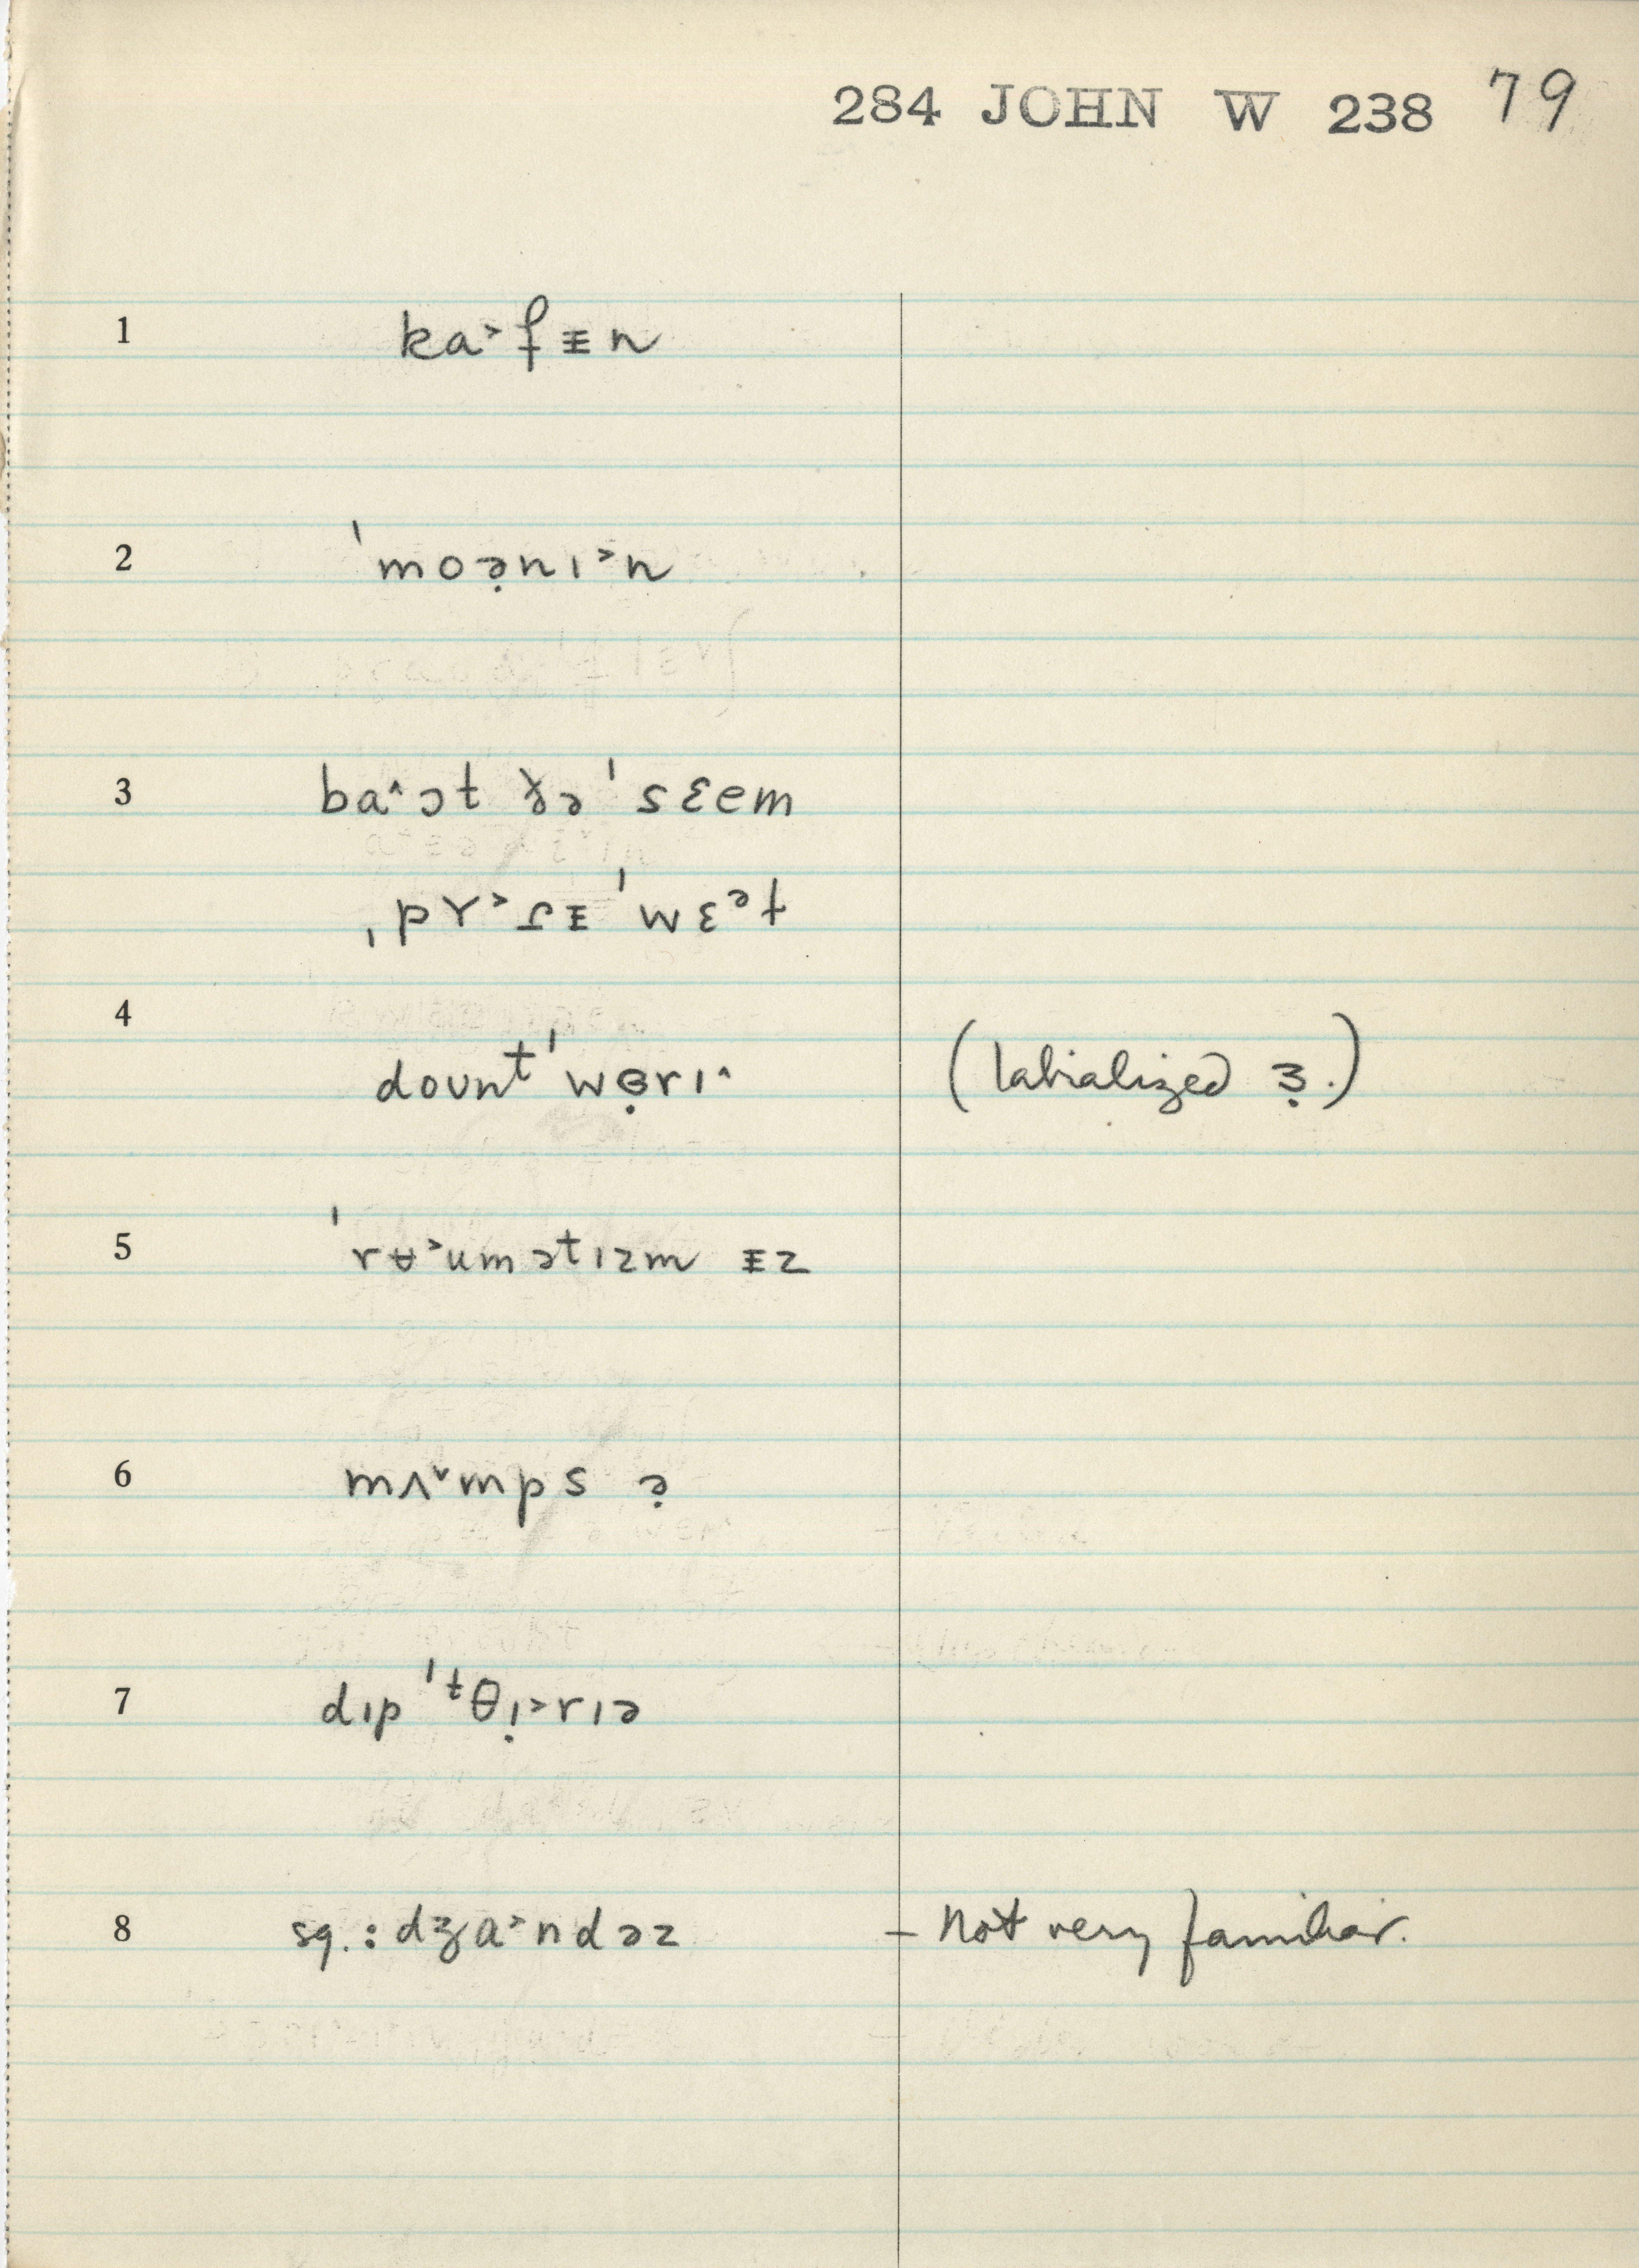 284 JOHN W 238 79
1 ka˃fᵻn
2 ˈmoə̣nɪ˃n
3 ba˄ɔt ðə ˈsɛem
ˌpɤ˃ɾᵻ ˈwɛᵊt
4 dount ˈwɵ̣rɪ˄ (labialized ɜ̣.)
5 ˈrʉ˃umətɪzm ᵻz
6 mʌ˅mps ə̣
7 dɪp ˈᵗθɪ̣˃rɪə
8 sq.: dʒa˃ndəz – Not very familiar.